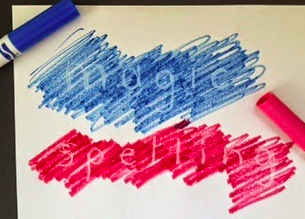 magic
spelling